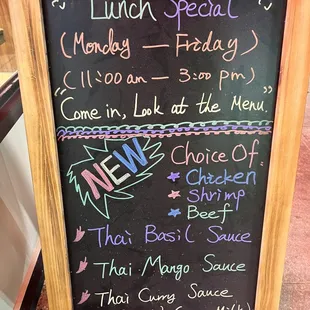 Lunch Special
(Monday — Friday)
(11:00 am — 3:00 pm)
"Come in, Look at the Menu."
NEW
Choice Of:
Chicken
Shrimp
Beef
Thai Basil Sauce
Thai Mango Sauce
Thai Curry Sauce
Milk)